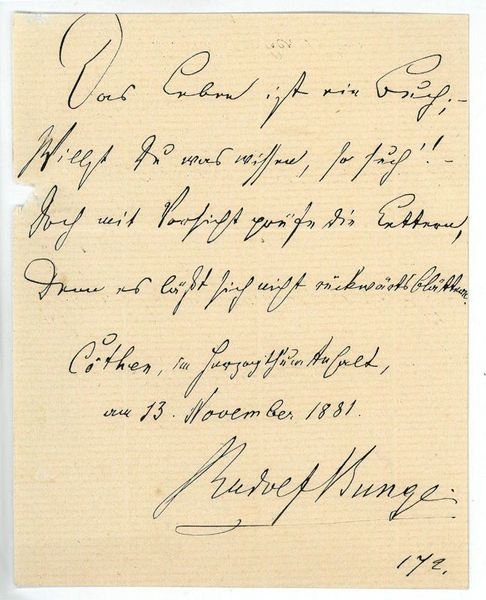 Das Leben ist ein Buch; –
Willst Du was wissen, so such'! –
Doch mit Vorsicht prüfe die Lettern,
Denn es läßt sich nicht rückwärts blättern.
Cöthen, im Herzogthum Anhalt,
am 13. November 1881.
Rudolf Bunge.
172.